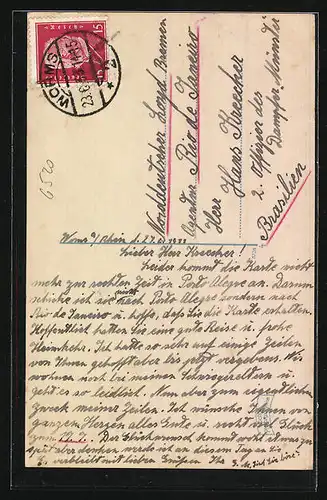 WORMS
15
6520
Norddeutscher Lloyd Bremen
Agentur Rio de Janeiro
Herr Hans Kraecher
2. Offizier des
Dampfer "Minden"
Brasilien
Worms a/Rhein d.
Lieber Herr Kraecher!
Leider kommt die Karte nicht
mehr zur rechten Zeit in Porto Alegre an. Darum
schicke ich sie nicht nach Porto Alegre sondern nach
Rio de Janeiro u. hoffe, daß Sie die Karte erhalten.
Hoffentlich hatten Sie eine gute Reise u. frohe
Heimkehr. Ich hatte so sehr auf einige Zeilen
von Ihnen gehofft aber bis jetzt vergebens. Wir
wohnen noch bei meinen Schwiegereltern u.
geht es so leidlich. Nun aber zum eigentlichen
Zweck meiner Zeilen. Ich wünsche Ihnen von
ganzem Herzen alles Gute u. recht viel Glück
zum Der Glückwunsch kommt wohl etwas zu
spät aber denken werde ich an diesem Tag an Sie
Es verbleibt mit lieben Grüßen Ihr